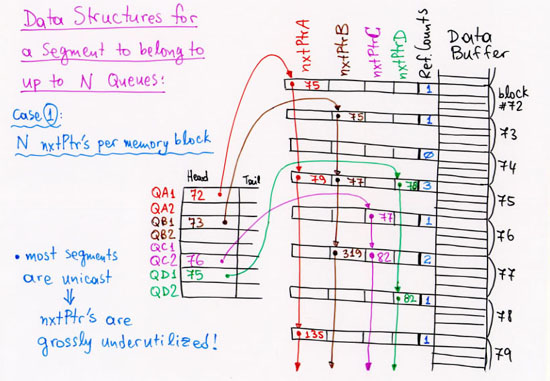 Data Structures for
a Segment to belong to
up to N Queues:
Case 1:
N nxtPtr's per memory block
• most segments
are unicast
⇓
nxtPtr's are
grossly underutilized!
Head Tail
QA1 72
QA2
QB1 73
QB2
QC1
QC2 76
QD1 75
QD2
nxtPtrA nxtPtrB nxtPtrC nxtPtrD Ref. Counts Data Buffer
75 1 block #72
75 1 73
0 74
79 77 78 3 75
77 1 76
319 82 2 77
82 1 78
135 1 79